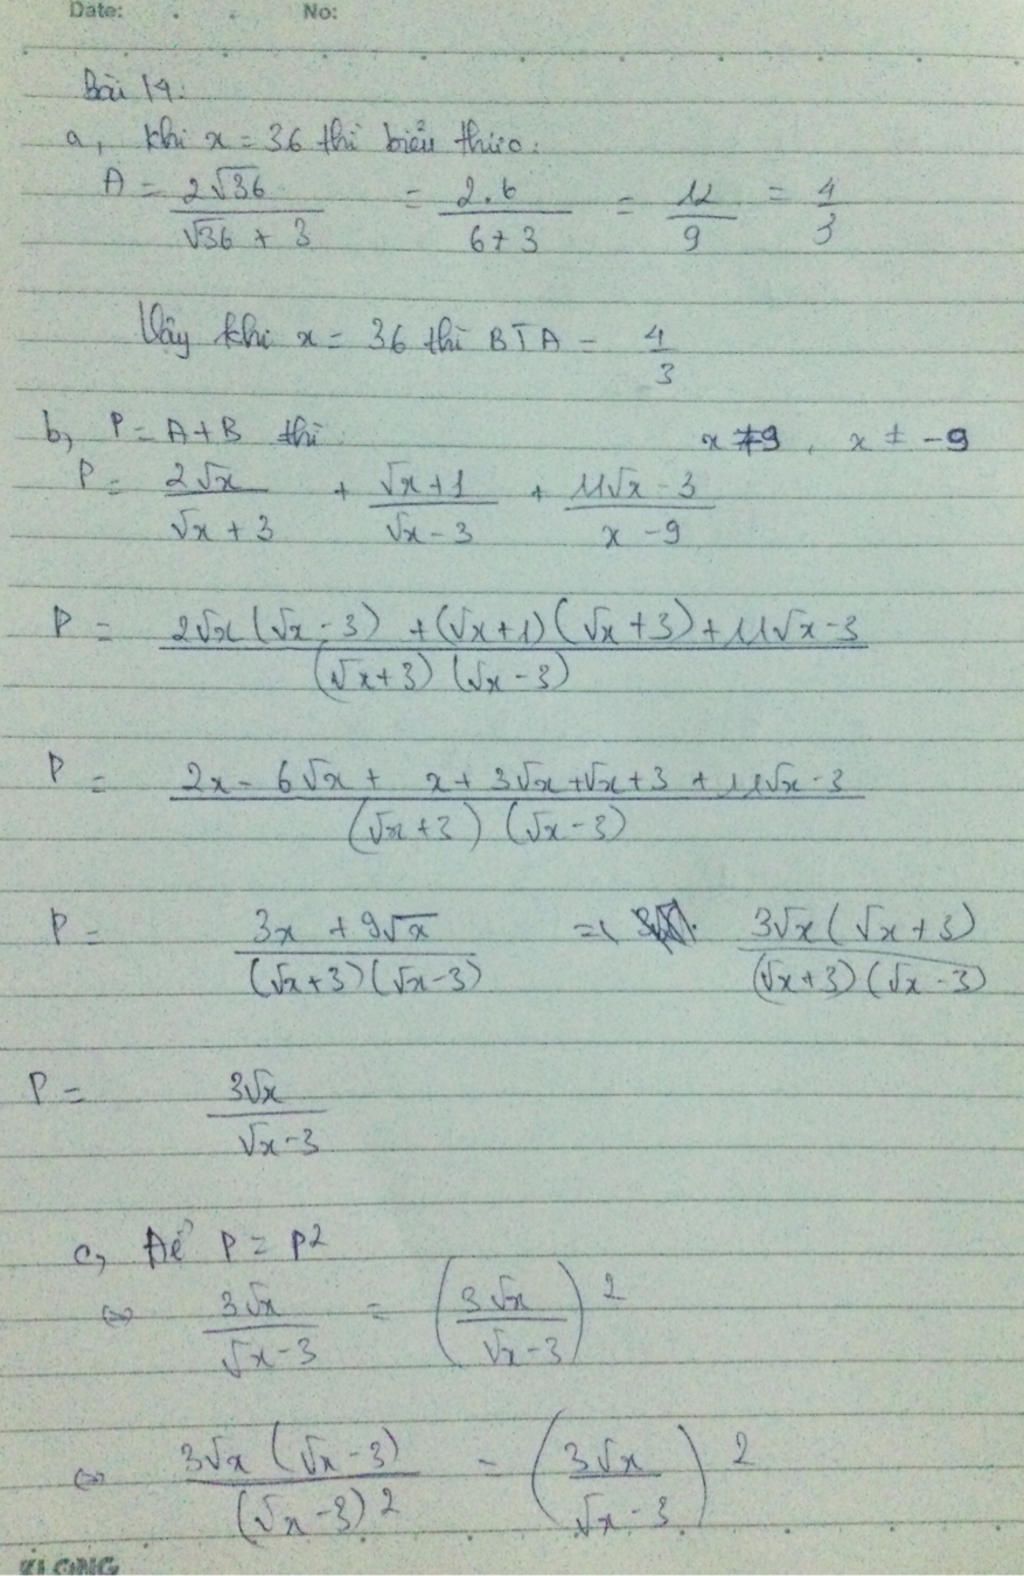 Date: . . No:
Bài 14:
a, Khi x = 36 thì biểu thức:
A = 2√36 / (√36 + 3) = 2.6 / (6+3) = 12/9 = 4/3
Vậy khi x = 36 thì BTA = 4/3
b, P = A+B thì x ≠ 9, x ± -9
P = 2√x / (√x + 3) + (√x+1) / (√x - 3) + (11√x - 3) / (x - 9)
P = (2√x(√x - 3) + (√x+1)(√x+3) + 11√x - 3) / ((√x+3)(√x-3))
P = (2x - 6√x + x + 3√x + √x + 3 + 11√x - 3) / ((√x+3)(√x-3))
P = (3x + 9√x) / ((√x+3)(√x-3)) = 3√x(√x+3) / ((√x+3)(√x-3))
P = 3√x / (√x-3)
c, Để P = P²
⇔ 3√x / (√x-3) = (3√x / (√x-3))²
⇔ 3√x(√x-3) / (√x-3)² = (3√x / (√x-3))²
KLONG